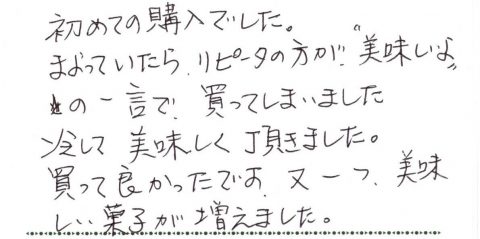 初めての購入でした。
まよっていたら、リピータの方が、"美味しいよ"
の一言で、買ってしまいました
冷して美味しく頂きました。
買って良かったです、又一つ、美味
しい菓子が増えました。